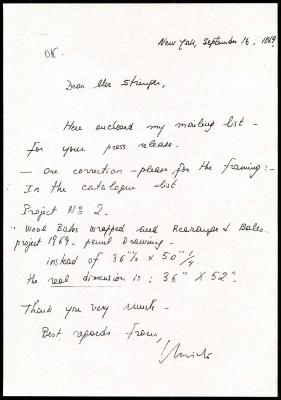 New York, September 16, 1969
OK.
Dear Mr Stringer,
Here enclosed my mailing list -
For your press release.
- one correction - please for the framing :-
In the catalogue list.
Project No 2.
"Wool Bales Wrapped and Rearranged Bales.
project 1969 - pencil Drawing -
instead of 36"1/2 x 50"1/4.
the real dimension is : 36" X 52".
Thank you very much -
Best regards from,
Christo